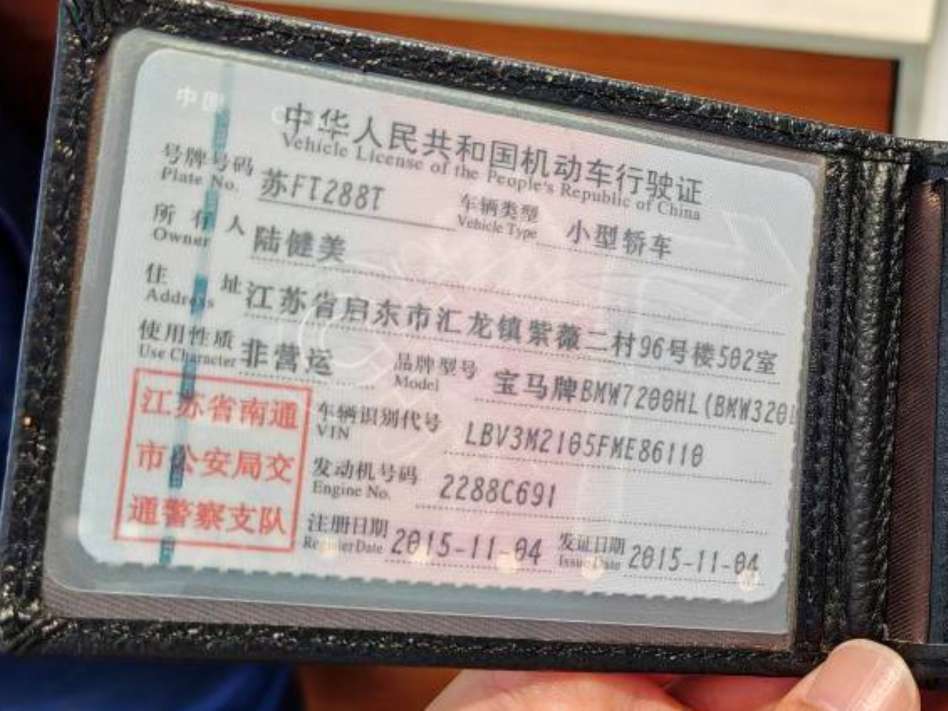 中国
中华人民共和国机动车行驶证
Vehicle License of the People's Republic of China
号牌号码 苏FT288T 车辆类型 小型轿车
Plate No. Vehicle Type
所有人 陆健美
Owner
住址 江苏省启东市汇龙镇紫薇二村96号楼502室
Address
使用性质 非营运 品牌型号 宝马牌BMW7200HL(BMW320
Use Character Model
江苏省南通
市公安局交
通警察支队
车辆识别代号 LBV3M2105FME86110
VIN
发动机号码 2288C691
Engine No.
注册日期 2015-11-04 发证日期 2015-11-04
Register Date Issue Date